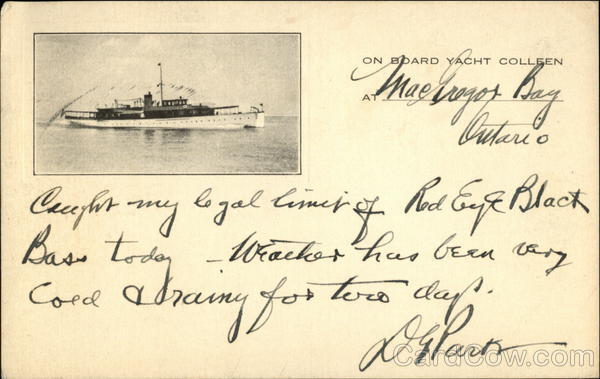 ON BOARD YACHT COLLEEN
AT MacGregor Bay
Ontario
Caught my legal limit of Red Eye Black
Bass today – Weather has been very
Cold & rainy for two days.
CardCow.com